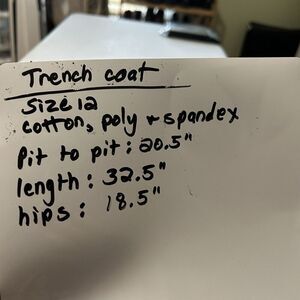 Trench coat
Size 12
cotton, poly + spandex
Pit to pit: 20.5"
length: 32.5"
hips: 18.5"